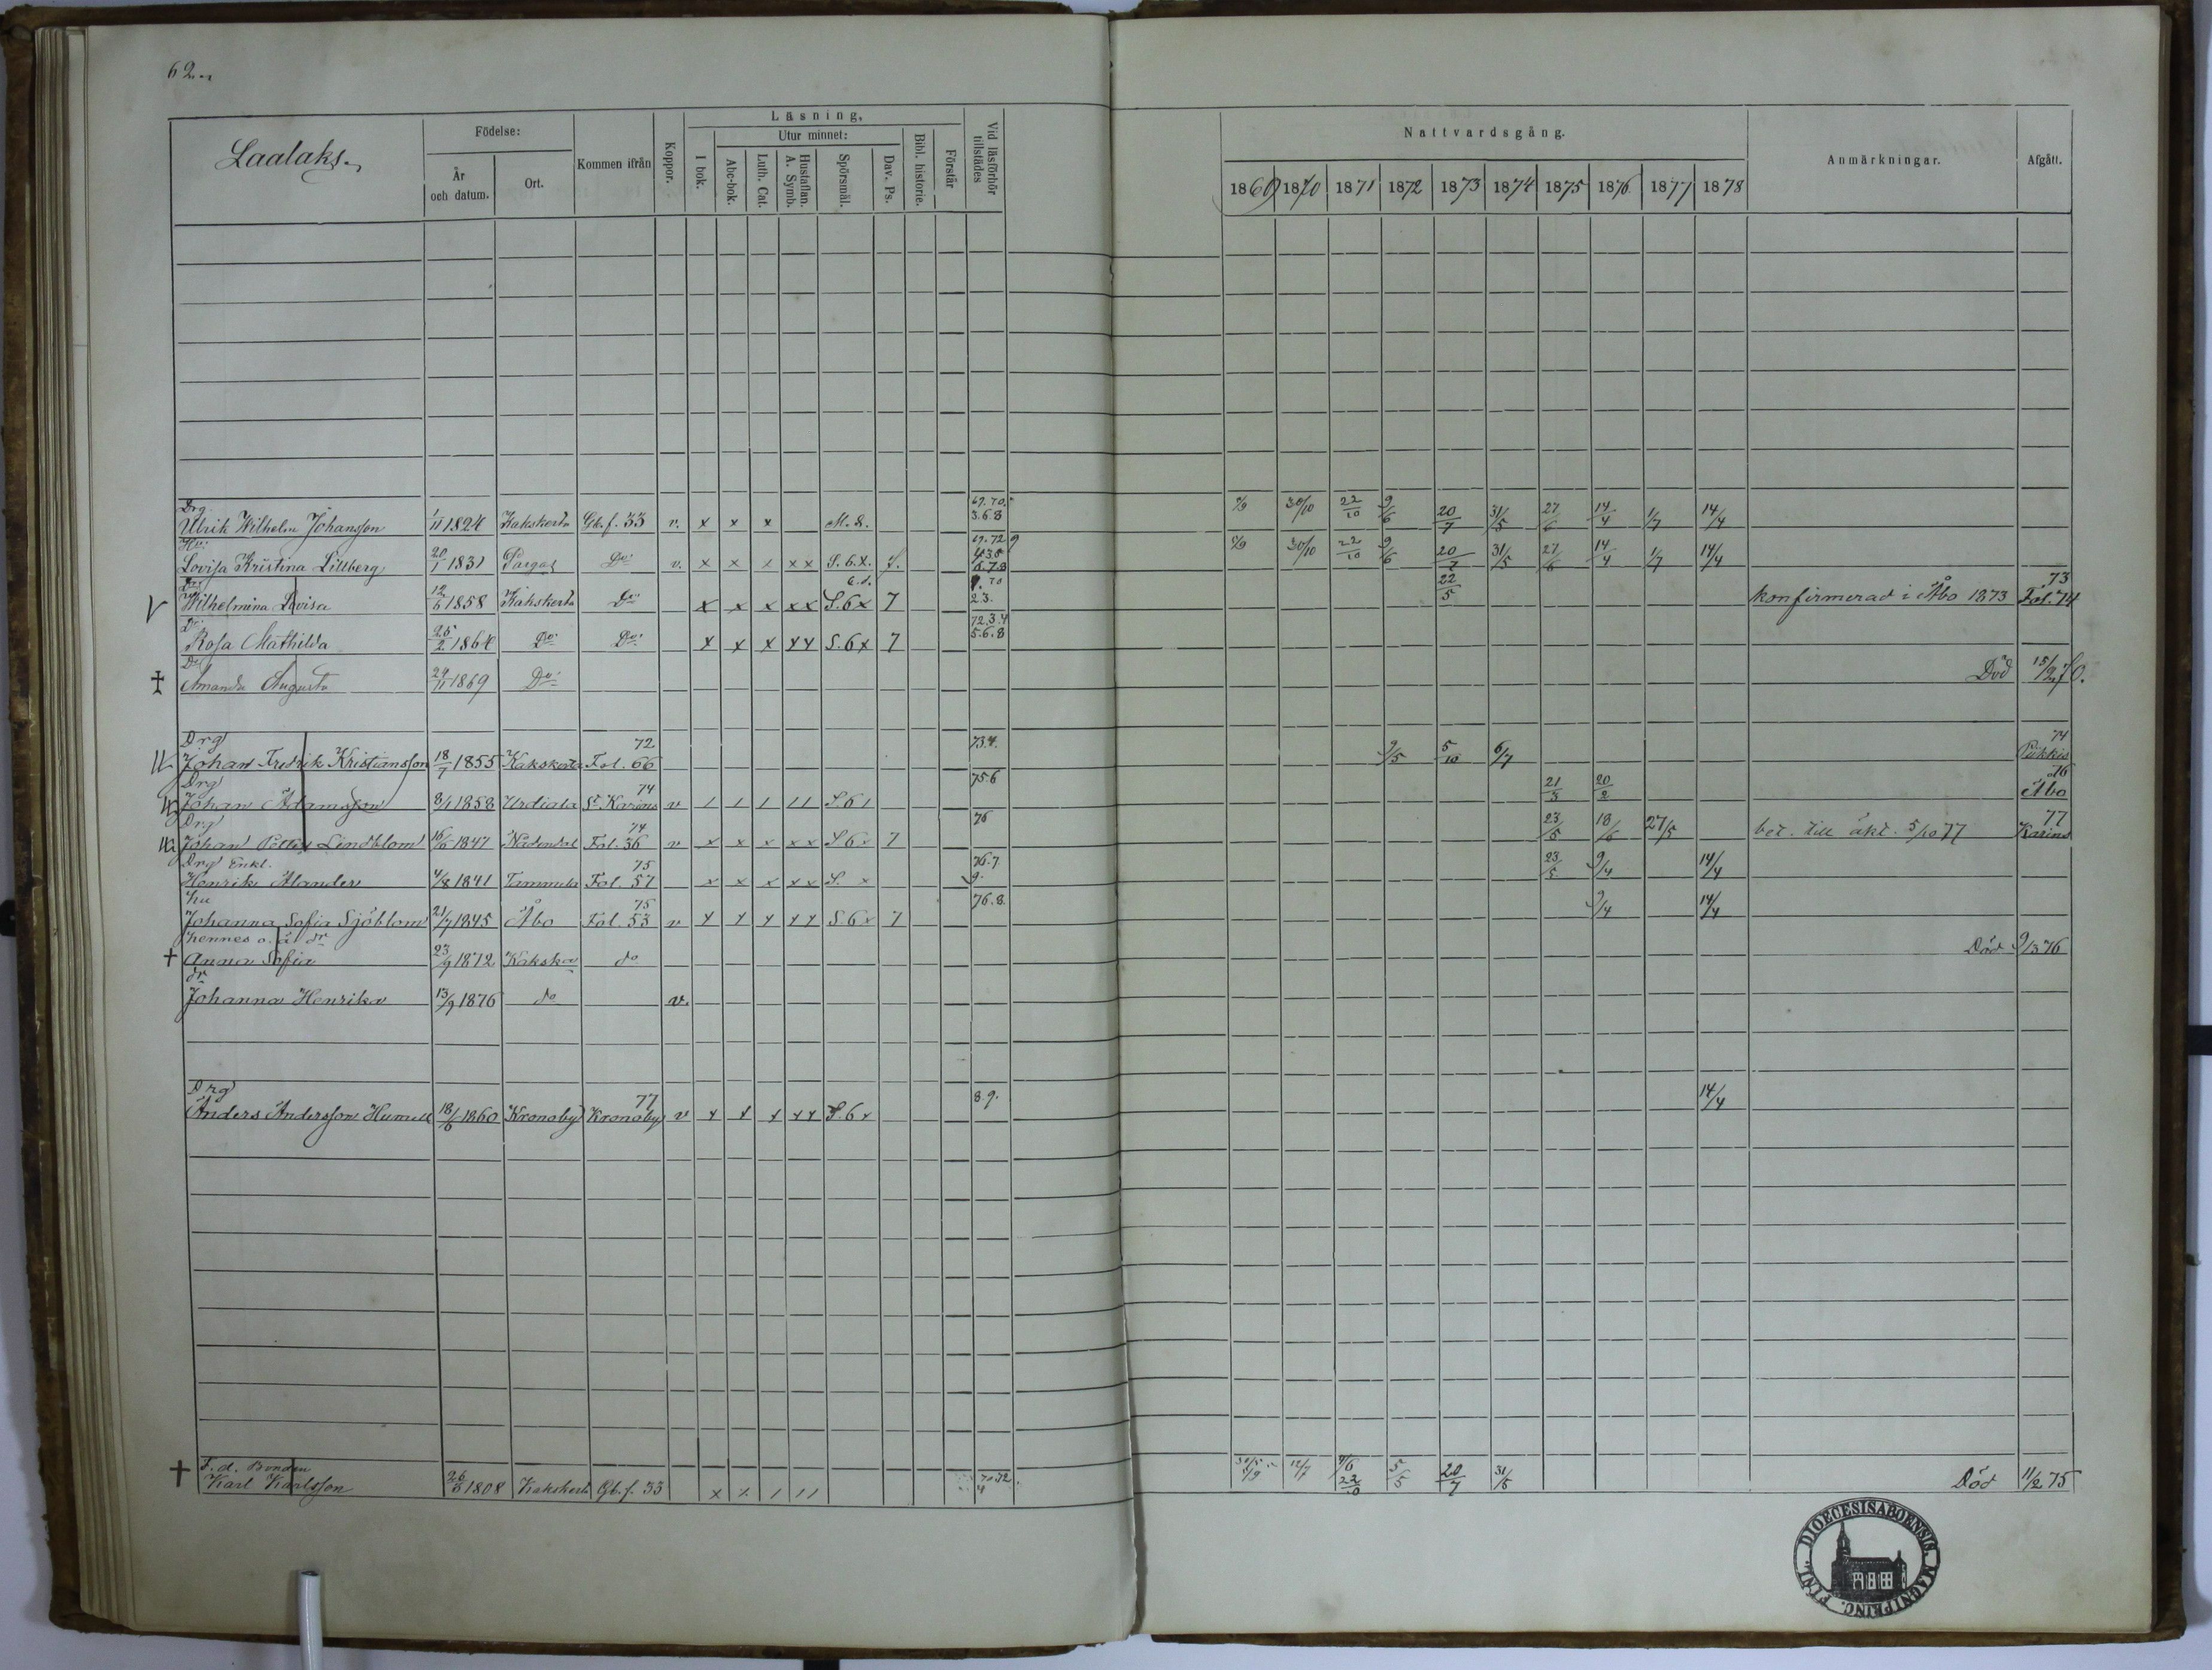 62.
Laalaks.
Födelse:
År och datum.
Ort.
Kommen ifrån
Koppor.
Läsning,
I bok.
Utur minnet:
Abc-bok.
Luth. Cat.
Hustaflan. A. Symb.
Spörsmål.
Dav. Ps.
Bibl. historie.
Förstår
Vid läsförhör tillstädes
Nattvardsgång.
1869 1870 1871 1872 1873 1874 1875 1876 1877 1878
Anmärkningar.
Afgått.
Drg 69.70.
Ulrik Wilhelm Johansson 1/11 1824 Kakskerta Gb. f. 33 v. x x x 3.6.8 30/10 22/10 9/6 20/7 31/5 27/6 14/4 1/7 14/4
Hu:
Lovisa Kristina Lillberg 20/1 1831 Pargas Do v. x x x x x S.6.x. 30/10 22/10 9/6 20/7 31/5 27/6 14/4 1/7 14/4
73
Wilhelmina Lovisa 12/6 1858 Kakskerta Do x x x x x S.6x 7 23. 22/5 konfirmerad i Åbo 1873 Fol. 74
Do 72.3.4
Rosa Mathilda 25/2 1864 Do Do x x x x x S.6x 7 5.6.8
Do
† Amanda Augusta 24/11 1869 Do Död 15/2 70.
Drg 72 73.4. 74
Johan Fredrik Kristiansson 18/7 1855 Kakskerta Fol. 66 9/5 5/10 6/7 Pikkis
Drg 74 756 76
Johan Adamsson 8/1 1858 Urdiala St Karins v 1 1 1 1 1 S.61 21/3 20/2 Åbo
Drg 74 76 77
Johan Lindblom 16/5 1847 Nådendal Fol. 36 v x x x x x S 6x 7 23/5 18/6 27/5 bet. till äkt. 5/10 77 Karins
Drg Enkl. 75 76.7
Henrik Ålander 4/8 1841 Tammela Fol. 57 x x x x x S. x 9. 23/5 9/4 14/4
hu 75 76.8.
Johanna Sofia Sjöblom 21/7 1845 Åbo Fol. 53 v x x x x x S.6x 7 9/4 14/4
hennes o. ä. dr
† Anna Sofia 23/9 1872 Kakska do Död 9/3 76
dr
Johanna Henrika 13/9 1876 do v.
Drg 77
Anders Andersson Humell 18/6 1860 Kronoby Kronoby v x x x x x S.6x 8.9. 14/4
F. d. Bonden
† Karl Karlsson 26/3 1808 Kakskerta Gb. f. 33 x x 1 1 1 12/7 5/5 20/7 31/5 Död 11/2 75
DIOECESIS ABOENSIS. MAGNI PRINC. FINL.